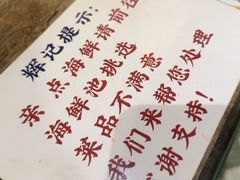 辉记提示:
亲点海鲜请前往
海鲜池挑选
菜品不满意
我们来帮您处理
谢谢支持!